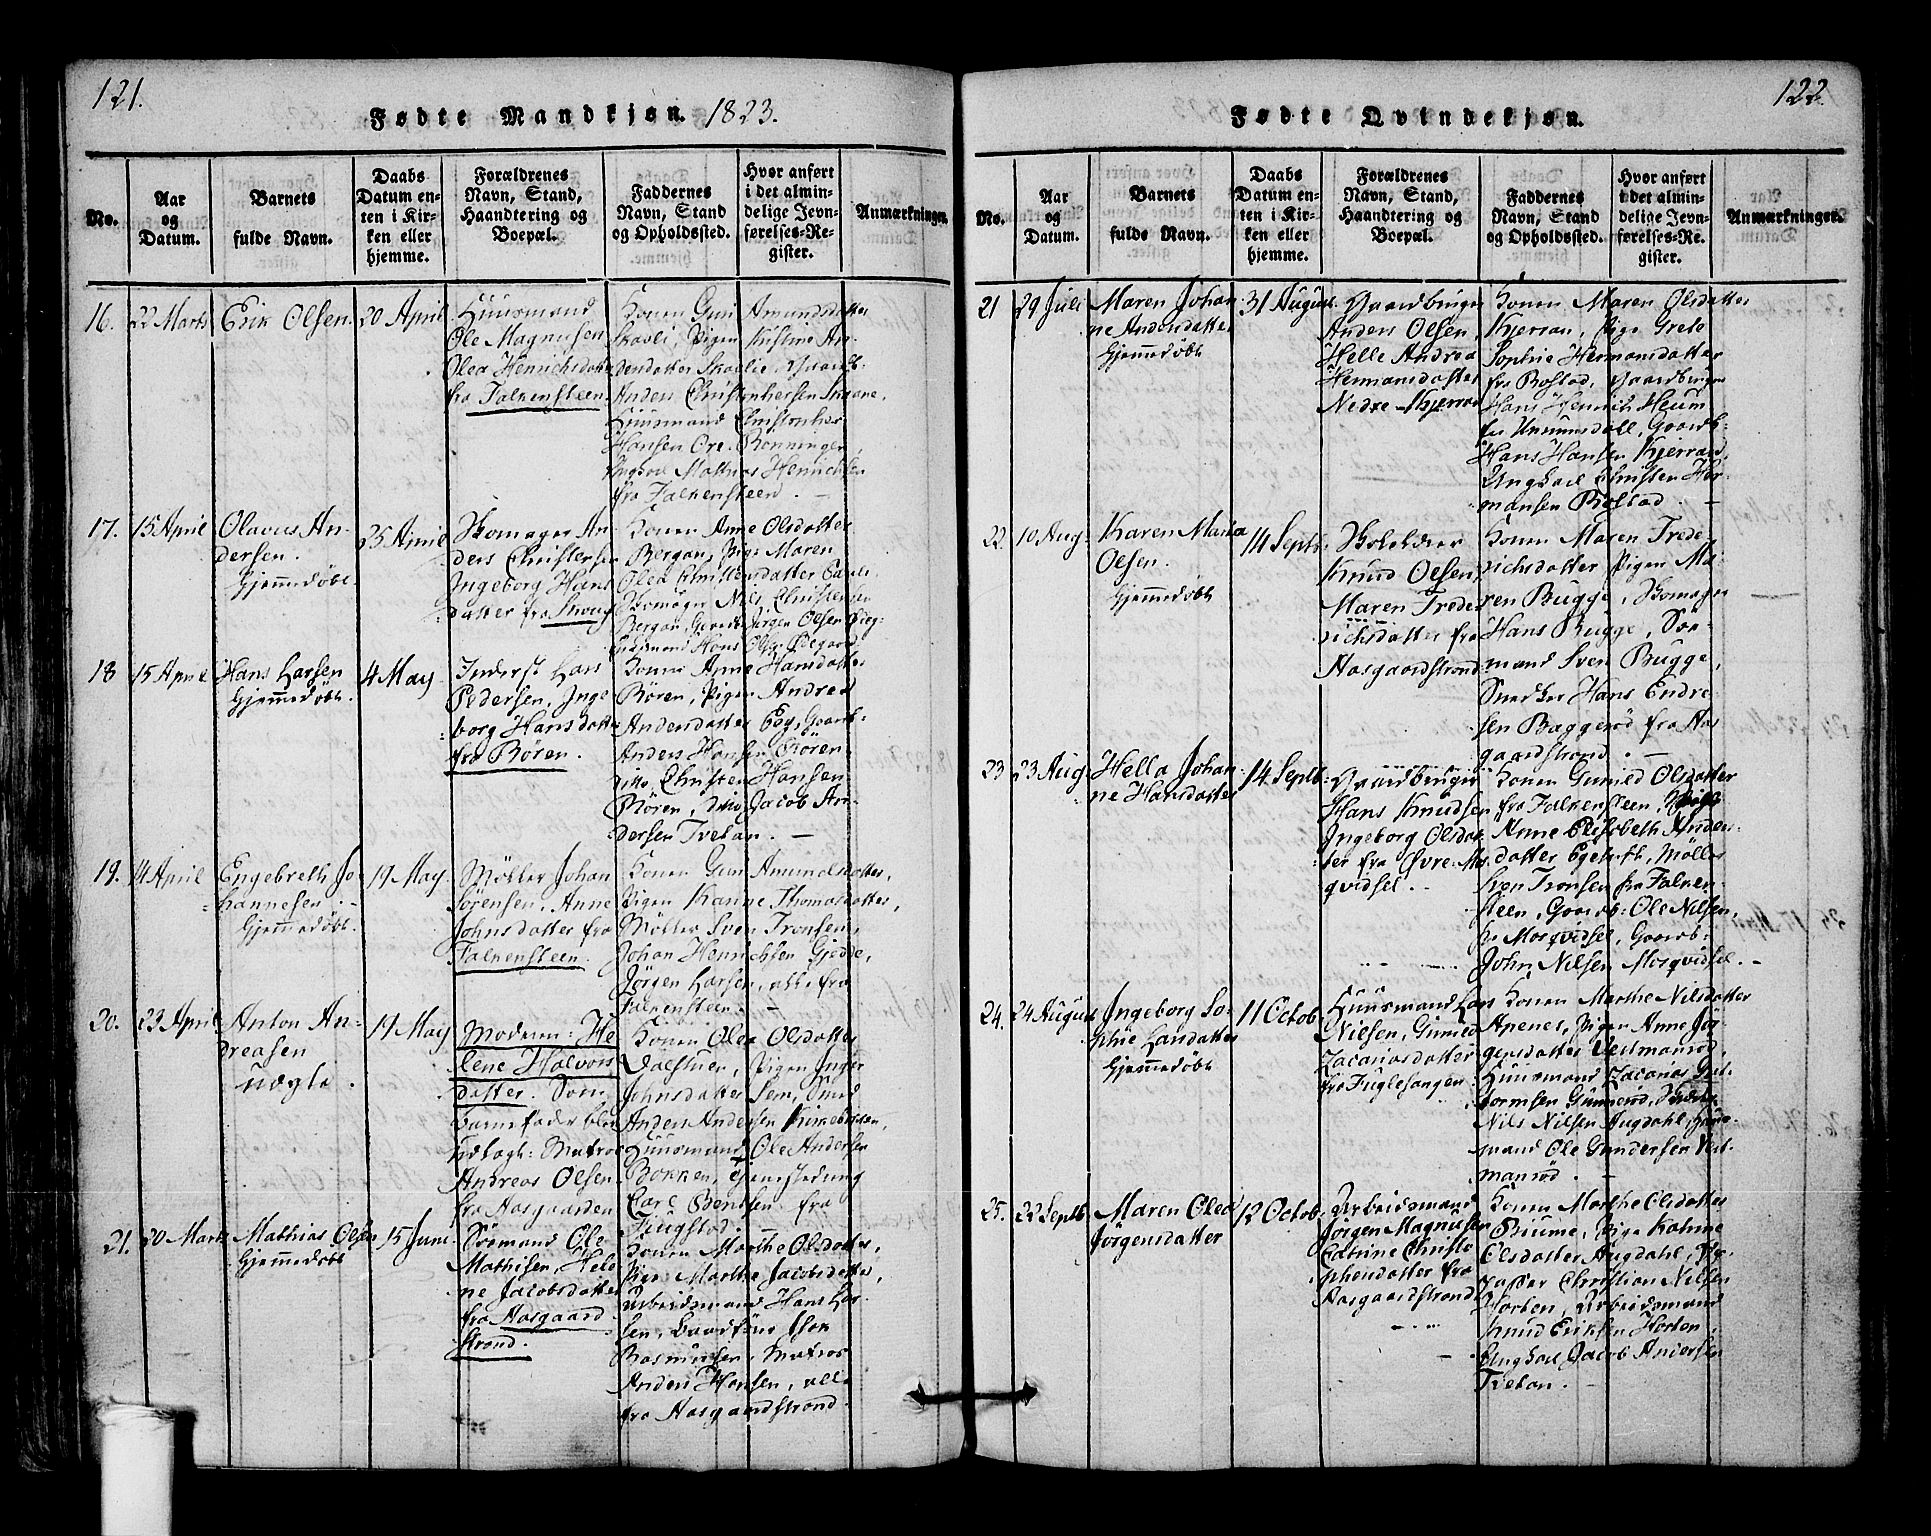 121.
Fødte Mandkjøn. 1823.
No.
Aar
og
Datum.
Barnets
fulde Navn.
Daabs
Datum en-
ten i Kir-
ken eller
hjemme.
Forældrenes
Navn, Stand,
Haandtering og
Boepæl.
Faddernes
Navn, Stand
og Opholdssted.
Hvor anført
i det almin-
delige Jevn-
førelses-Re-
gister.
Anmærkninger.
16.
22 Marts
Erik Olsen.
20 April
Huusmand
Ole Magnusen
Olea Henrichsdatter
fra Falkensteen.
Konen Guri Amundsdatter
Skavli, Pigen Kistine An-
dersdatter Skavlie
Anders Christophersen
Huusmand Christopher
Hansen Ronninger
Ungkarl Mathias Henrichsen
fra Falkensteen. –
17.
15 April
Olavus An-
dersen.
hjemmedøbt
25 April
Skomager An-
ders Christensen
Ingeborg Hans
datter fra Skoug
Konen Anne Olsdatter
Bergan, Pige Maren
Olea Christensdatter
Skomager Nils Christensen
Bergan, Jørgen Olsen
Huusmand Hans Olsen
18
15 April
Hans Larsen
hjemmedøbt.
4 May
Inderst Lars
Pedersen, Inge
borg Hansdatter
fra Røren.
Konen Anne Hansdatter
Røren, Pigen Andrea
Andersdatter Eeg, Gaardb:
Anders Hansen Røren
ditto, Christen Hansen
Røren, dito Jacob An-
dersen Tvetan. –
19.
14 April
Engebreth Jo
hannesen.
hjemmedøbt.
19 May
Møller Johan
Sørensen, Anne
Johnsdatter fra
Falkensteen.
Konen Guri Amundsdatter,
Pigen Karine Thomasdatter,
Møller Sven Tronsen,
Johan Henrichsen Gjedde,
Jørgen Larsen, alle fra
Falkensteen. –
20.
23 April
Anton An-
dreasen
uægte.
19 May
Moderen: He
lene Halvors
datter. Som
Barnefader blev
udlagt: Matros
Andreas Olsen
fra Aasgaarden
Konen Olea Olsdatter
Dalstuen, Pigen Inger
Johnsdatter Sem, Smed
Anders Andersen Kirkebakken,
Huusmand Ole Andersen
Bakken,
Carl Bendtsen fra
Fuugstad.
21.
20 Marts
Mathias Olsen
hjemmedøbt
15 Juni
Søemand Ole
Mathisen, Hele
ne Jacobsdatter
fra Aasgaard
strand.
Konen Marthe Olsdatter,
Pigen Marthe Jacobsdatter,
Arbeidsmand Hans Lar-
sen, Isak
Rasmussen, Matros
Anders Hansen, alle
fra Aasgaardstrand.
122.
Fødte Qvindekjøn.
No.
Aar
og
Datum.
Barnets
fulde Navn.
Daabs
Datum en-
ten i Kir-
ken eller
hjemme.
Forældrenes
Navn, Stand,
Haandtering og
Boepæl.
Faddernes
Navn, Stand
og Opholdssted.
Hvor anført
i det almin-
delige Jevn-
førelses-Re-
gister.
Anmærkninger.
21
29 Juli
Maren Johan
ne Andersdatter
hjemmedøbt
31 August
Gaardbruger
Anders Olsen,
Helle Andrea
Hermansdatter
Nedre Kjerran
Konen Maren Olsdatter
Kjerran, Pige Grete
Sophie Hermansdatter
fra Bostad, Gaardbruger
Hans Henrich Heum
fra Undrumsdall, Gaardb:
Hans Hansen Kjerran,
Ungkarl Christen Her-
mansen Bostad. –
22.
10 Aug:
Karen Maria
Olsen.
hjemmedøbt
14 Septb:
Skoleholder
Knud Olsen,
Maren Frede
richsdatter fra
Aasgaardstrand
Konen Maren Frede
richsdatter Pigen Ma-
ren Bugge, Skomager
Hans Bugge, Søe-
mand Sven Bugge,
Snedker Hans Endre-
sen Baggerød fra Aas
gaardstrand. –
23
23 Aug
Hella Johan
ne Hansdatter
14 Septb:
Gaardbruger
Hans Knudsen
Ingeborg Olsdat
ter fra Øvre Mos
qvidsel.
Konen Gunild Olsdatter
fra Falkensteen, Pige
Anne Elisabeth Anders-
datter Møller
Sven Tronsen fra Falken
steen, Gaardb: Ole Nilsen,
fra Mosqvidsel, Gaardb:
John Nilsen Mosqvidsel. –
24.
24 August
Ingeborg So-
phie Larsdatter
hjemmedøbt
11 Octob
Huusmand Lars
Nilsen, Gunild
Zacariasdatter
fra Fuglesangen
Konen Marthe Nilsdatter
Apenes, Pigen Anne Jør
gensdatter Vestmanrød,
Huusmand Zacarias Gut-
tormsen Gunnerød,
Nils Nilsen Augdahl, Huus
mand Ole Gundersen Vest
manrød.
25.
22 Septb:
Maren Olea
Jørgensdatter
12 Octob:
Arbeidsmand
Jørgen Magnusen
Catrine Christo
phersdatter fra
Aasgaardstrand
Konen Marthe Olsdatter
Bruume, Pige Karine
Olsdatter Augdahl,
Christian Nilsen
Horten, Arbeidsmand
Knud Eriksen Horten,
Ungkarl Jacob Andersen
Tvetan. –